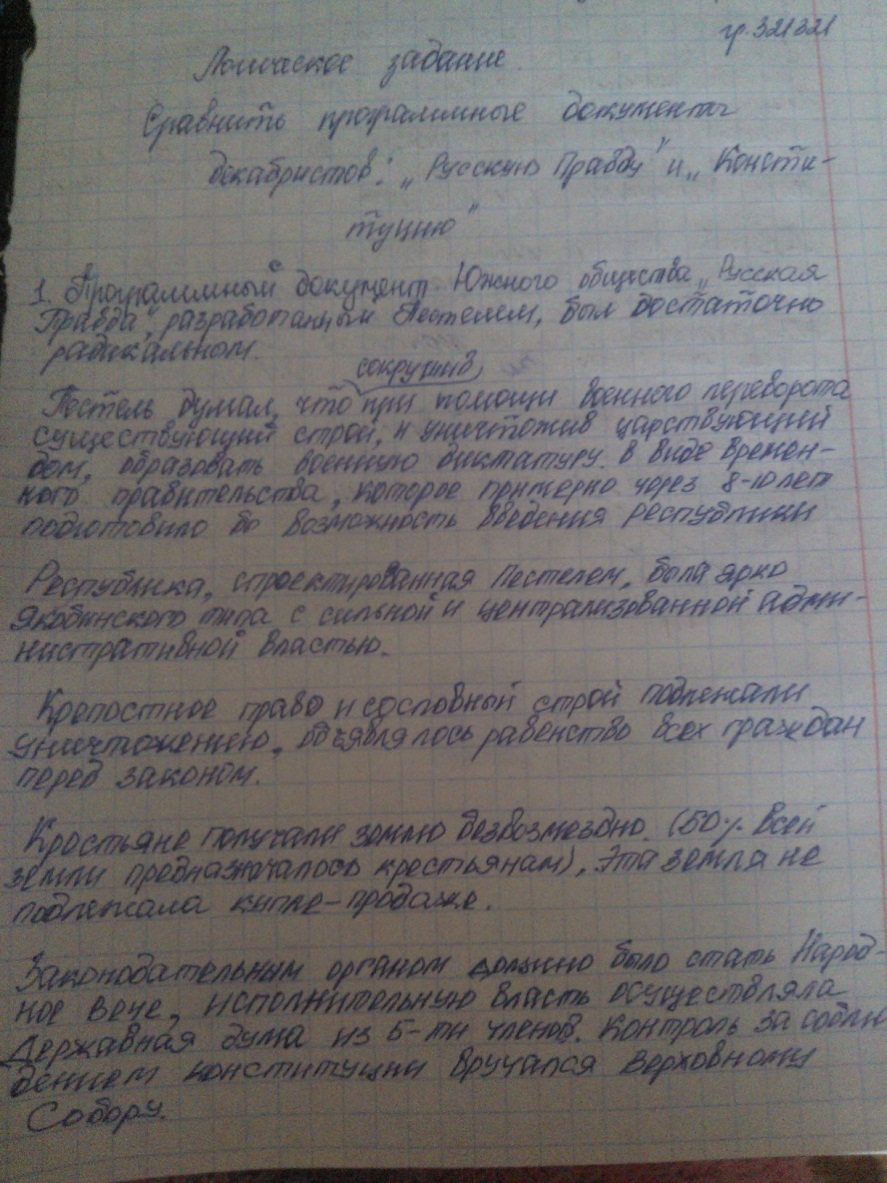 гр. 321321
Логическое задание.
Сравнить программные документы
декабристов: „Русскую Правду" и „Консти-
туцию"
1. Программный документ Южного общества „Русская
Правда", разработанным Пестелем, был достаточно
радикальном.
сокрушив,
Пестель думал, что при помощи военного переворота
существующий строй, и уничтожив царствующий
дом, образовать военную диктатуру в виде времен-
ного правительства, которое примерно через 8-10 лет
подготовило бы возможность введения республики
Республика, спроектированная Пестелем, была ярко
якобинского типа с сильной и централизованной адми-
нистративной властью.
Крепостное право и сословный строй подлежали
уничтожению, объявлялось равенство всех граждан
перед законом.
Крестьяне получали землю безвозмездно. (50% всей
земли предназначалось крестьянам), Эта земля не
подлежала купле-продаже.
Законодательным органом должно было стать Народ-
ное вече, исполнительную власть осуществляла
Державная дума из 5-ти членов. Контроль за соблю
дением конституции вручался Верховному
Собору.